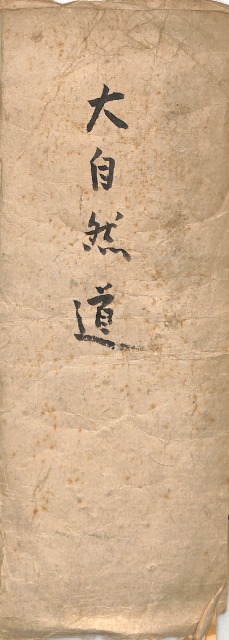 大自然道